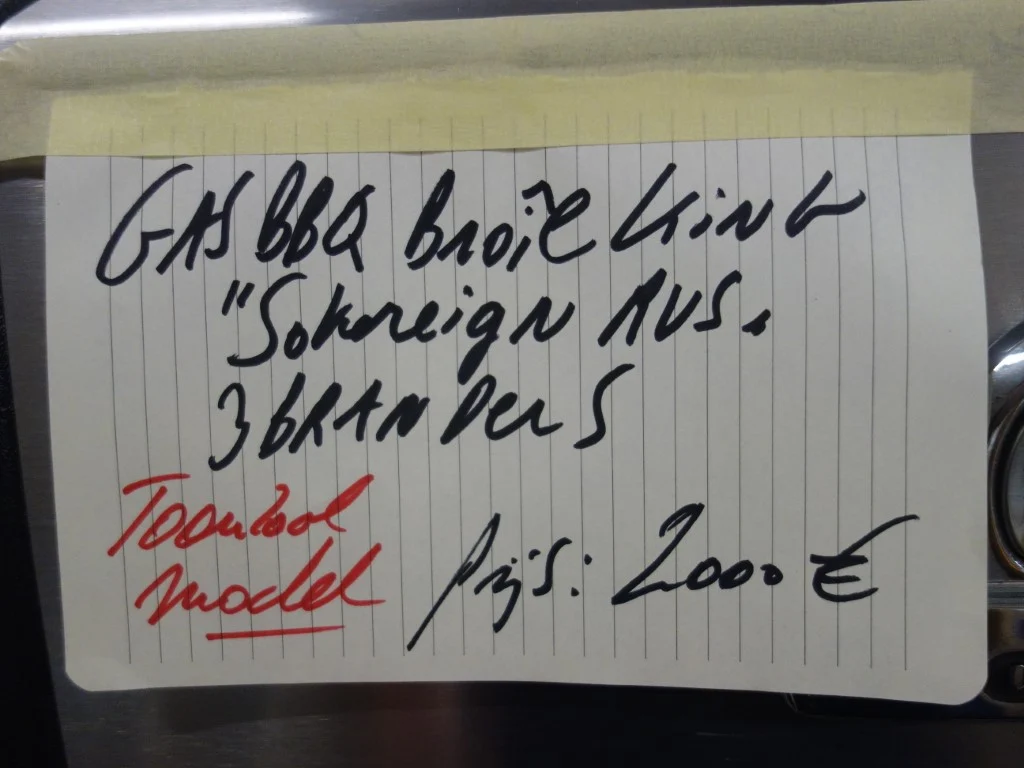 GAS BBQ BROIL KING
"Sokereign AUS.
3 BRANDERS
Toonzaal
model
prijs: 2000 €